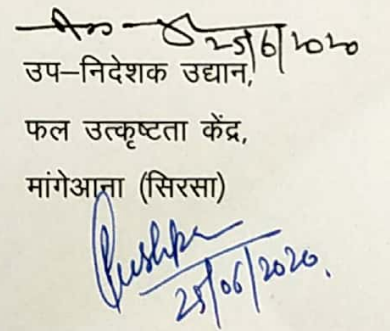 25/6/2020
उप-निदेशक उद्यान,
फल उत्कृष्टता केंद्र,
मांगेआना (सिरसा)
25/06/2020.